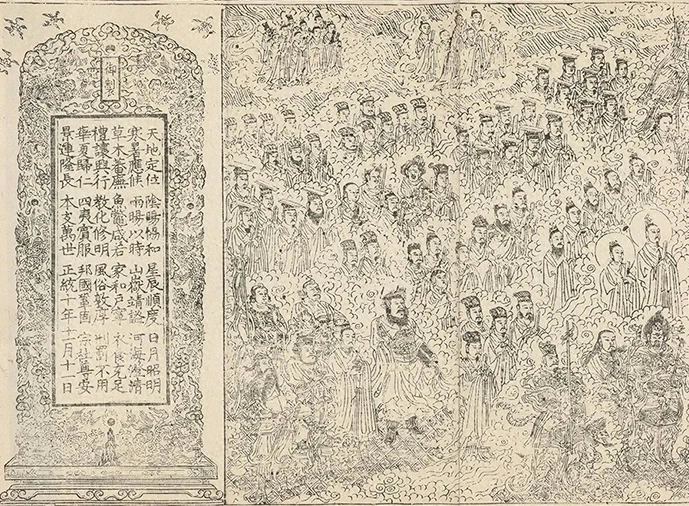 御
天地定位 陰陽協和 星辰順度 日月昭明
寒暑應候 雨暘以時 山嶽靖謐 河海澄清
草木蕃廡 魚鱉咸若 家和戶寧 衣食充足
禮讓興行 教化修明 風俗敦厚 刑罰不用
華夏歸仁 四夷賓服 邦國鞏固 宗社尊安
景運隆長 本支萬世 正統十年十一月十一日